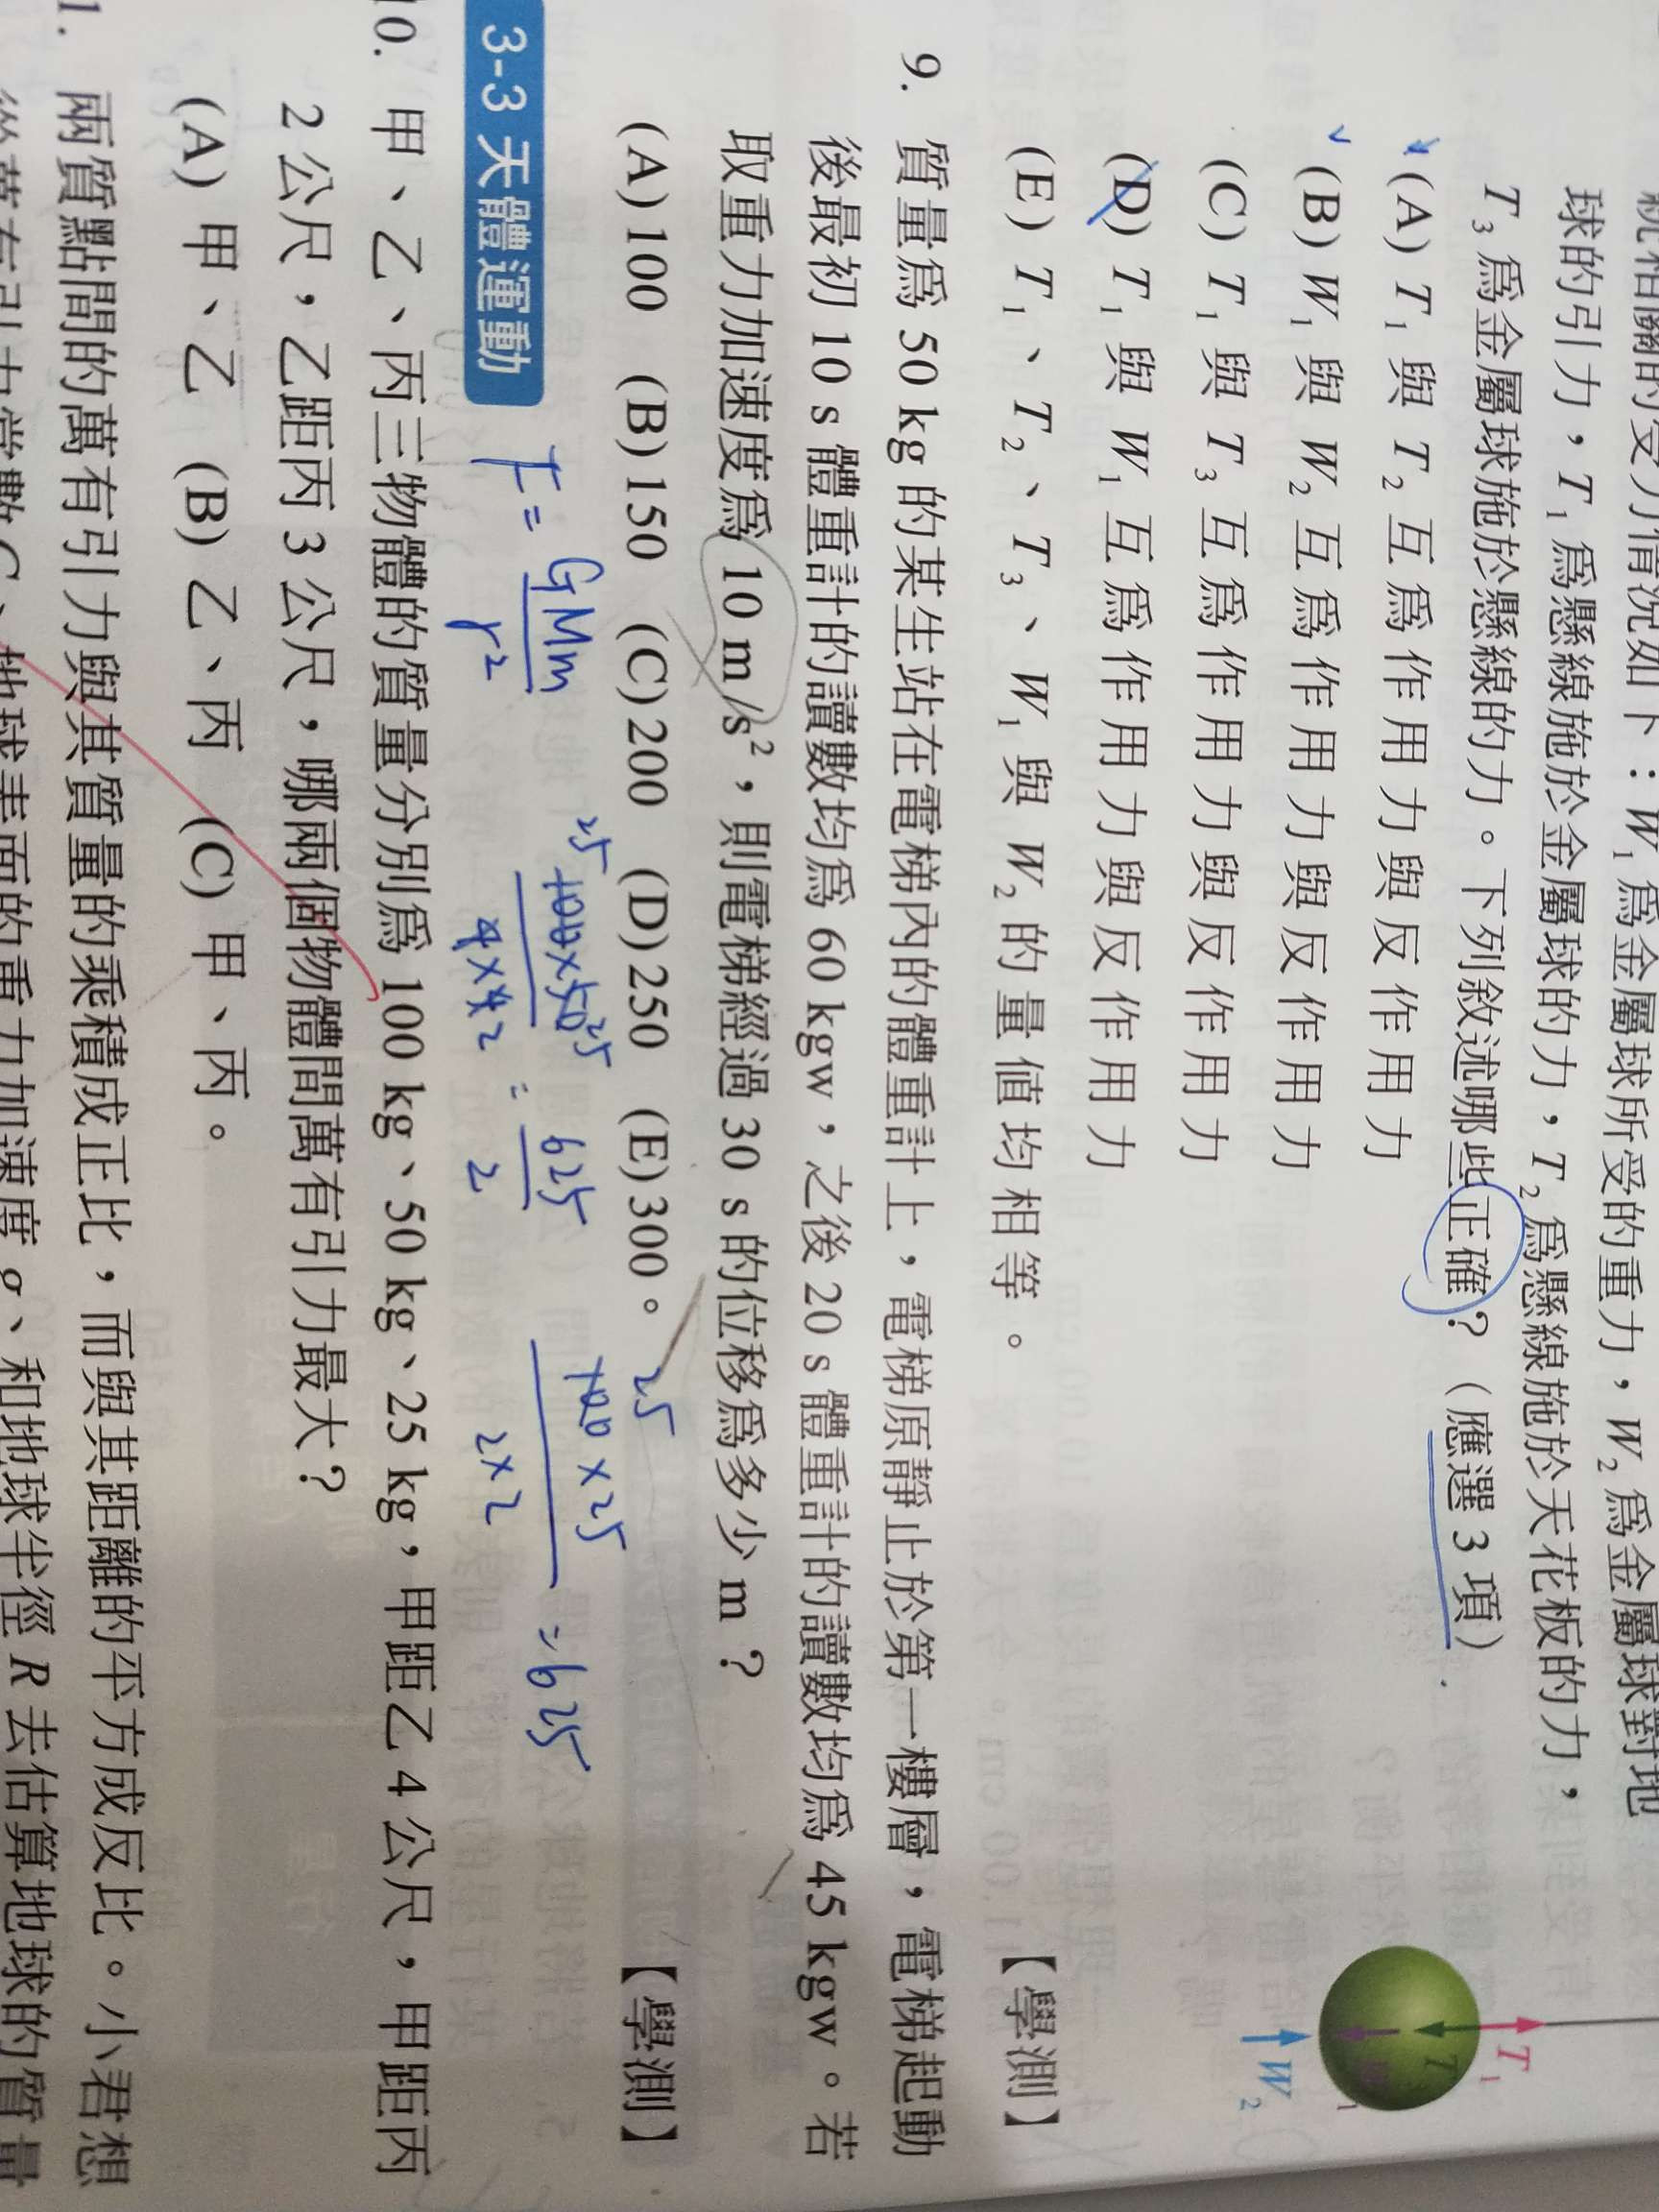 就相關的受力情況如下：W₁ 為金屬球所受的重力，W₂ 為金屬球對地
球的引力，T₁ 為懸線施於金屬球的力，T₂ 為懸線施於天花板的力，
T₃ 為金屬球施於懸線的力。下列敘述哪些正確？（應選 3 項）
(A) T₁ 與 T₂ 互為作用力與反作用力
(B) W₁ 與 W₂ 互為作用力與反作用力
(C) T₁ 與 T₃ 互為作用力與反作用力
(D) T₁ 與 W₁ 互為作用力與反作用力
(E) T₁、T₂、T₃、W₁ 與 W₂ 的量值均相等。
【學測】
T₁
W₂
9. 質量為 50 kg 的某生站在電梯內的體重計上，電梯原靜止於第一樓層，電梯起動
後最初 10 s 體重計的讀數均為 60 kgw，之後 20 s 體重計的讀數均為 45 kgw。若
取重力加速度為 10 m/s²，則電梯經過 30 s 的位移為多少 m？
(A) 100 (B) 150 (C) 200 (D) 250 (E) 300。
【學測】
3-3 天體運動
F = GMm / r²
25 100×50 25 / 4×4 2 = 625 / 2
25 100 × 25 / 2×2 = 625
10. 甲、乙、丙三物體的質量分別為 100 kg、50 kg、25 kg，甲距乙 4 公尺，甲距丙
2 公尺，乙距丙 3 公尺，哪兩個物體間萬有引力最大？
(A) 甲、乙 (B) 乙、丙 (C) 甲、丙。
1. 兩質點間的萬有引力與其質量的乘積成正比，而與其距離的平方成反比。小君想
從萬有引力常數 G、地球表面的重力加速度 g、和地球半徑 R 去估算地球的質量